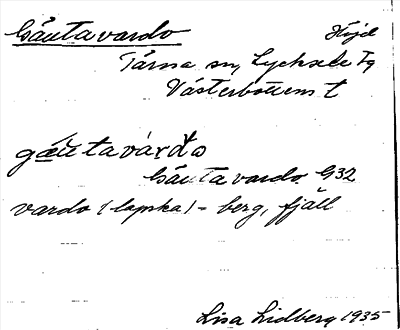 Gåutavardo Höjd
Tärna sn, Lycksele Lg
Västerbottens l
gåu̯tavárđo
Gåutavardo G32
vardo (lapska) = berg, fjäll
Lisa Lidberg 1935